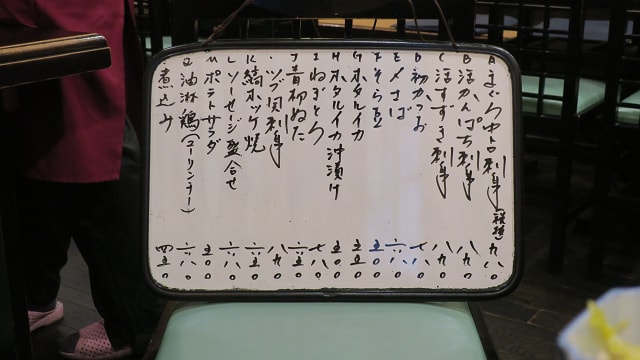 A まぐろ中トロ刺身 九八〇
B 活かんぱち刺身 八八〇
C 活すずき刺身 八九〇
D 初かつお 七八〇
E 〆さば 六八〇
F そら豆 五五〇
G ホタルイカ 五五〇
H ホタルイカ沖漬け 五五〇
I ねぎとろ 七八〇
J 青柳ぬた 六五〇
・ツブ貝刺身 八九〇
K 縞ホッケ焼 六五〇
L ソーセージ盛合せ 六八〇
M ポテトサラダ 五〇〇
Q 油淋鶏(ユーリンチー) 六八〇
・煮込み 四五〇